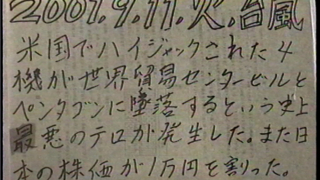 2001.9.11.火.台風
米国でハイジャックされた4
機が世界貿易センタービルと
ペンタゴンに墜落するという史上
最悪のテロが発生した。また日
本の株価が1万円を割った。